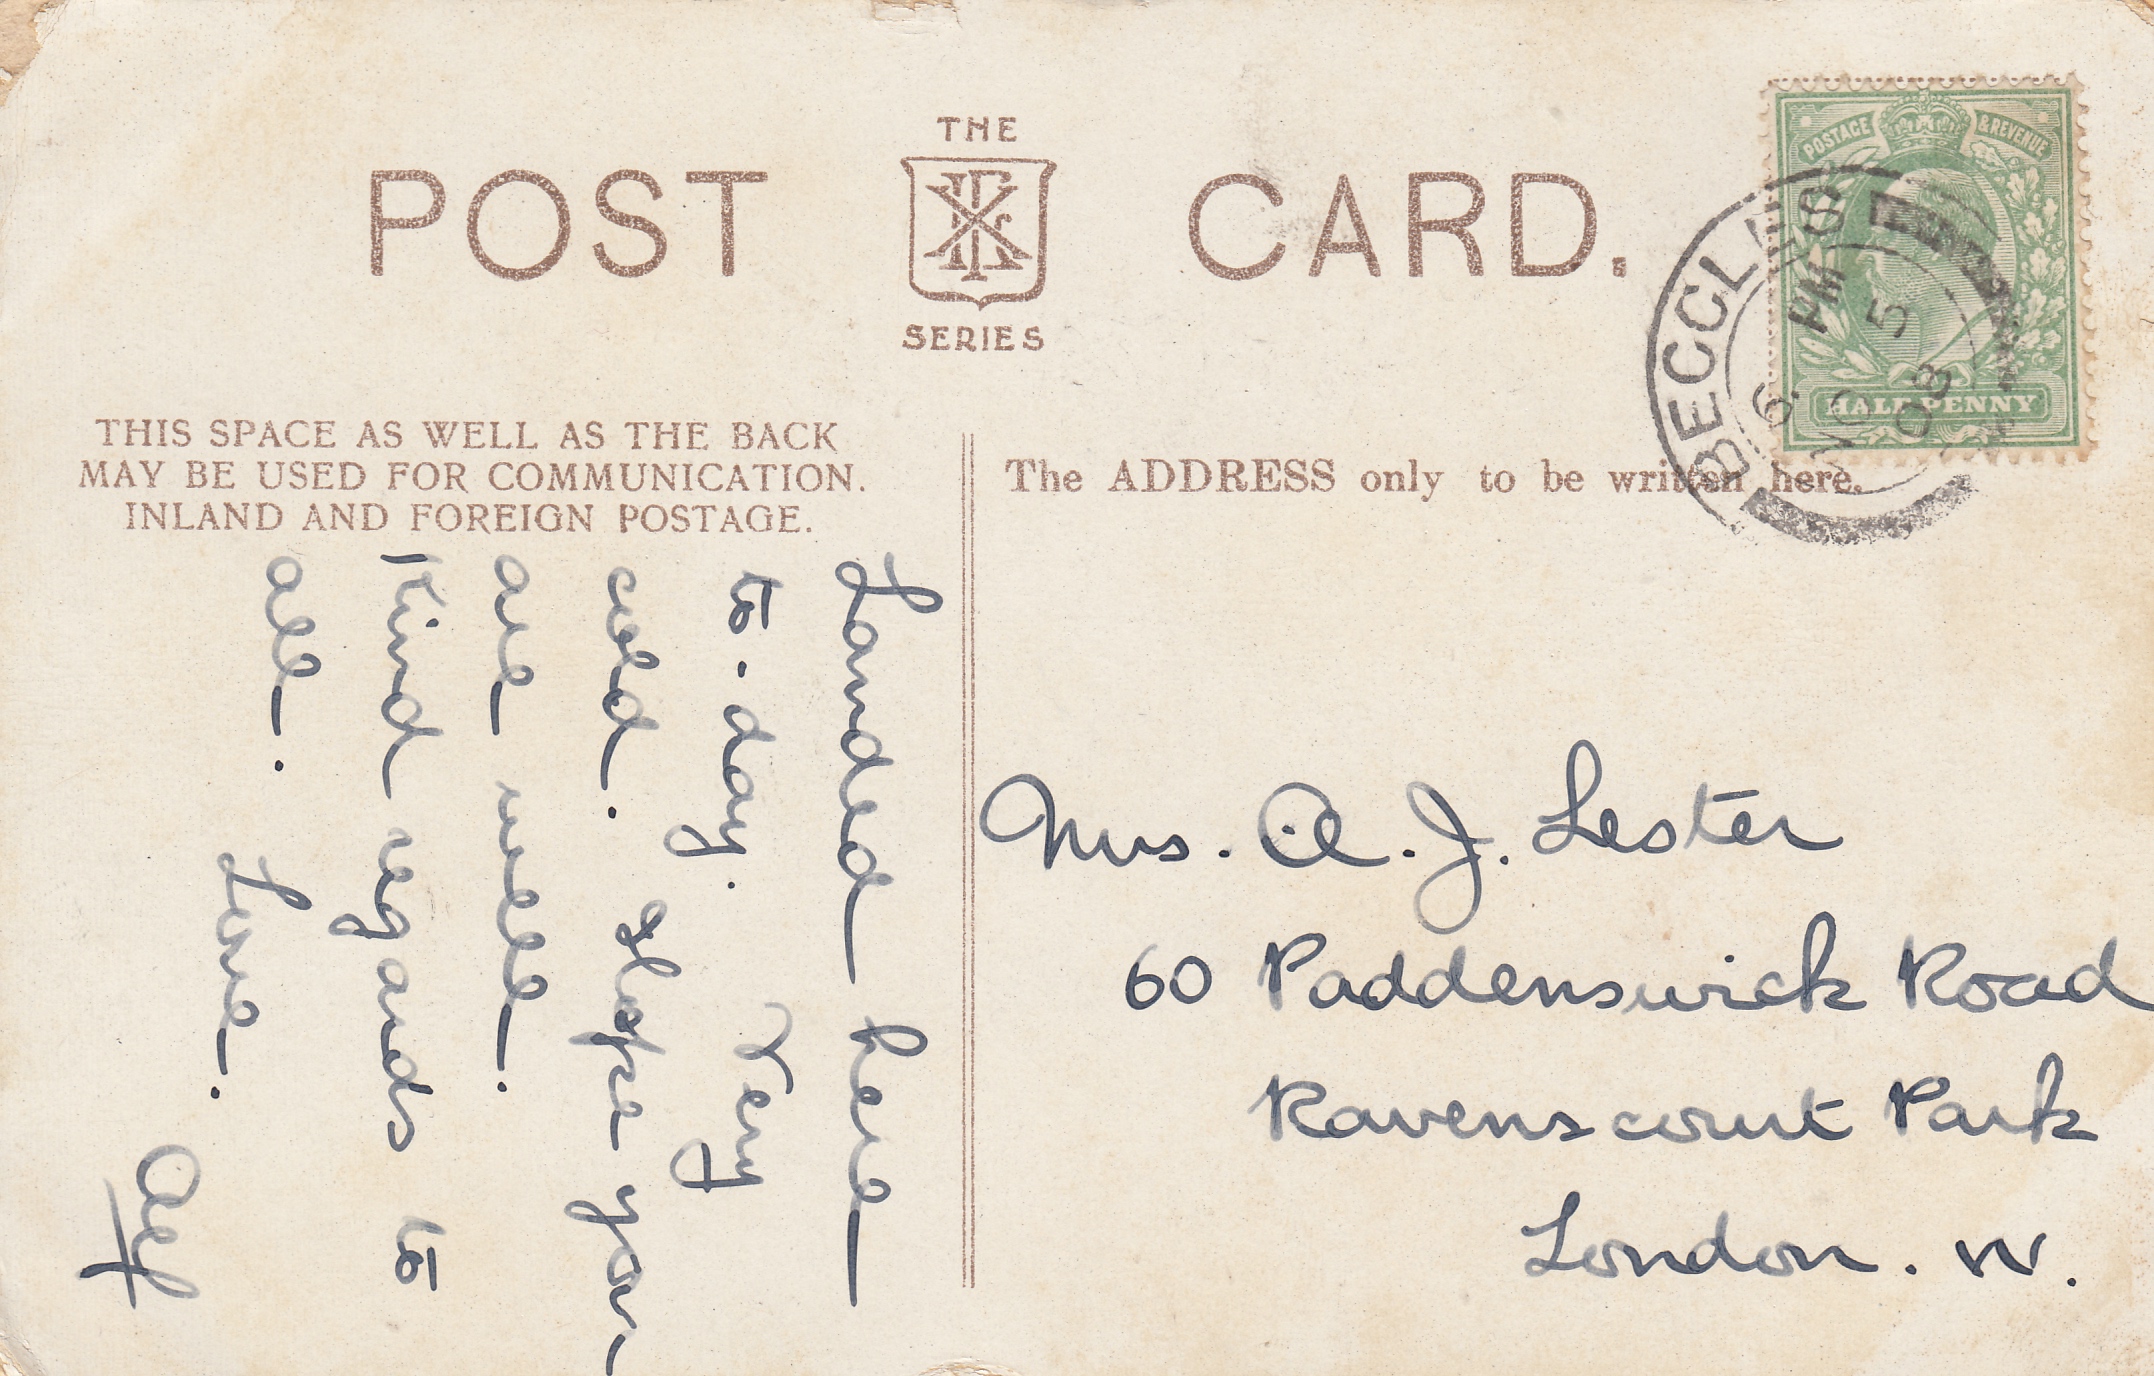 THE
POST CARD.
SERIES
POSTAGE & REVENUE
HALF PENNY
BECCLES
6. PM
NO 5
08
THIS SPACE AS WELL AS THE BACK
MAY BE USED FOR COMMUNICATION.
INLAND AND FOREIGN POSTAGE.
The ADDRESS only to be written here.
Landed here
to-day. Very
cold. Hope you
are well.
Kind regards to
all. Love.
Alf
Mrs. A. J. Lester
60 Paddenswick Road
Ravenscourt Park
London. W.